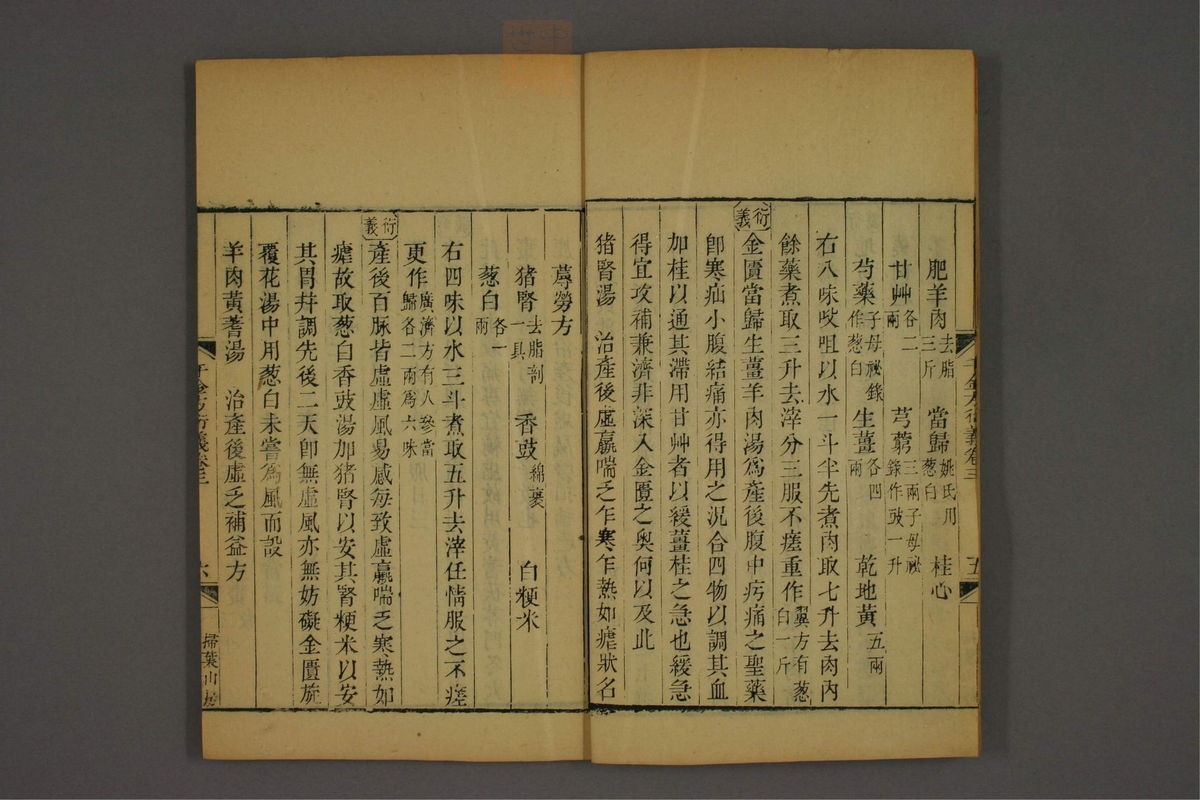 肥羊肉去脂三斤　當歸姚氏用葱白　桂心
甘艸各二兩　芎藭三兩子母祕錄作豉一升
芍藥子母祕錄作葱白　生薑各四兩　乾地黃五兩
右八味㕮咀以水一斗半先煮肉取七升去肉內
餘藥煮取三升去滓分三服不瘥重作翼方有葱白一斤
衍義
金匱當歸生薑羊肉湯爲產後腹中㽲痛之聖藥
卽寒疝小腹結痛亦得用之況合四物以調其血
加桂以通其滯用甘艸者以緩薑桂之急也緩急
得宜攻補兼濟非深入金匱之奧何以及此
猪腎湯　治產後虛羸喘乏乍寒乍熱如瘧狀名
千金方衍義卷三
五
蓐勞方
猪腎去脂剖一具　香豉綿裹　白粳米
葱白各一兩
右四味以水三斗煮取五升去滓任情服之不瘥
更作廣濟方有人參當歸各二兩爲六味
衍義
產後百脉皆虛虛風易感每致虛羸喘乏寒熱如
瘧故取葱白香豉湯加猪腎以安其腎粳米以安
其胃幷調先後二天卽無虛風亦無妨礙金匱旋
覆花湯中用葱白未嘗爲風而設
羊肉黃蓍湯　治產後虛乏補益方
千金方衍義卷三
六
掃葉山房